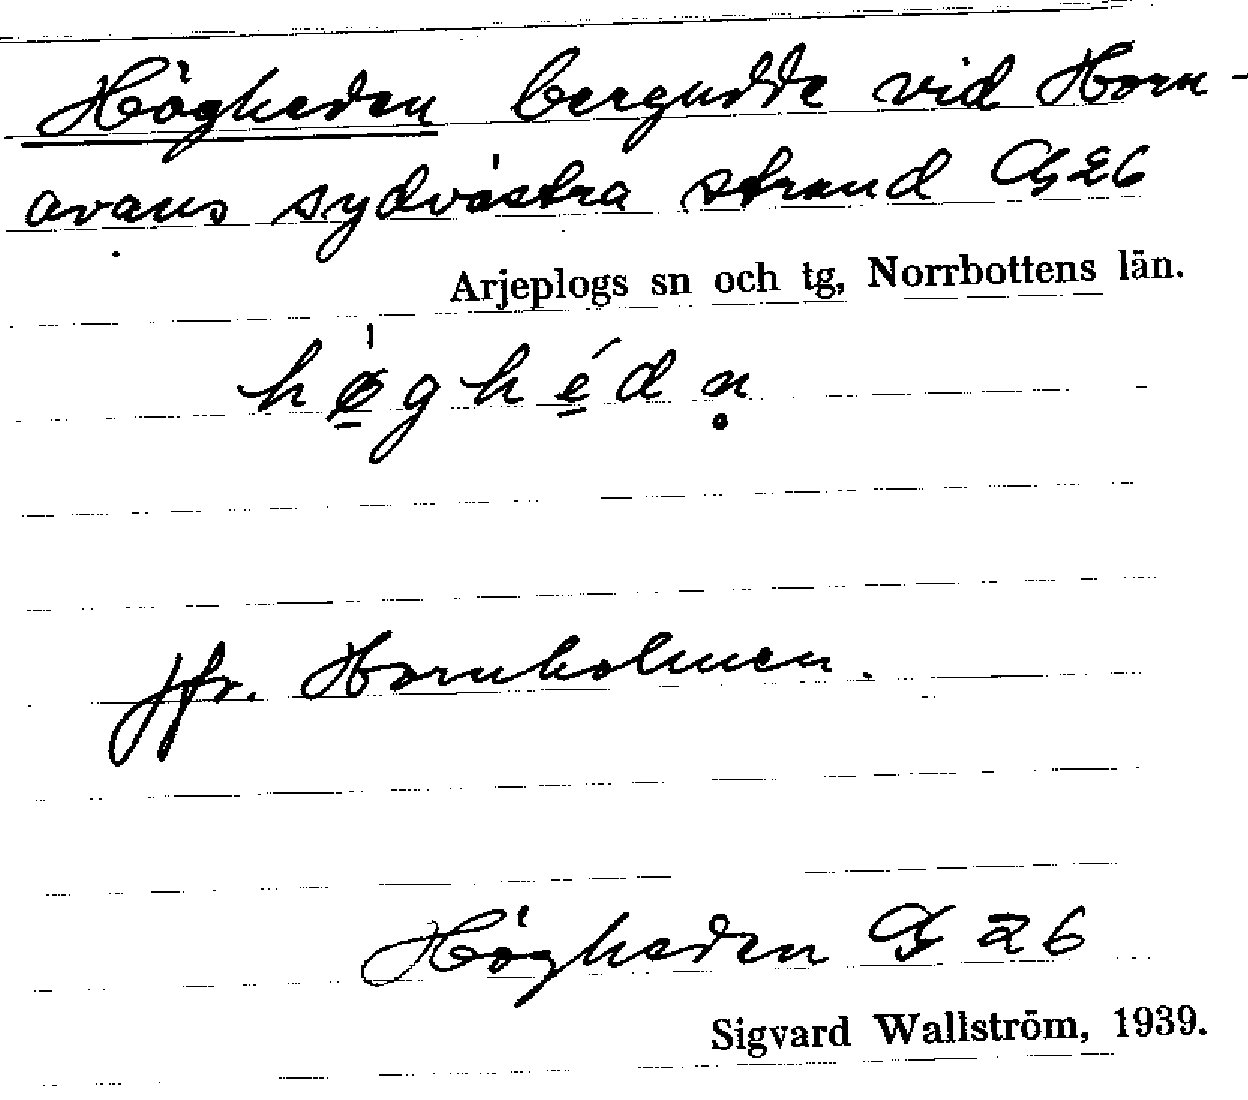 Högheden bergudde vid Horn-
avans sydvästra strand G26
Arjeplogs sn och tg, Norrbottens län.
hø̱̍ghé̱dn̥
jfr. Hornholmen.
Högheden G 26
Sigvard Wallström, 1939.